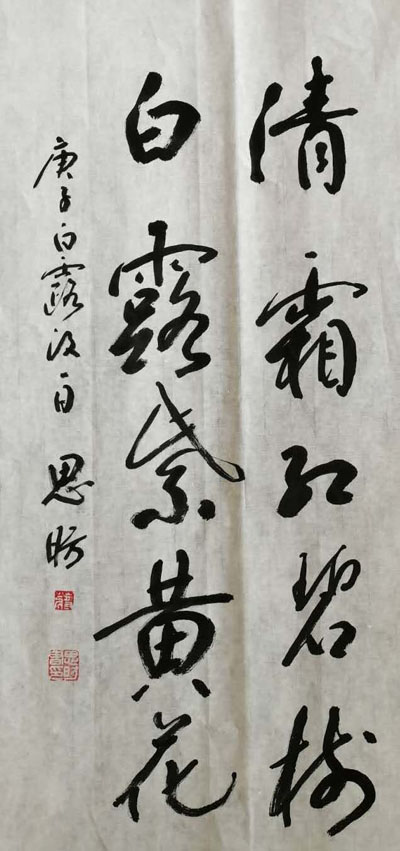 清霜红碧树
白露紫黄花
庚子白露後一日 思